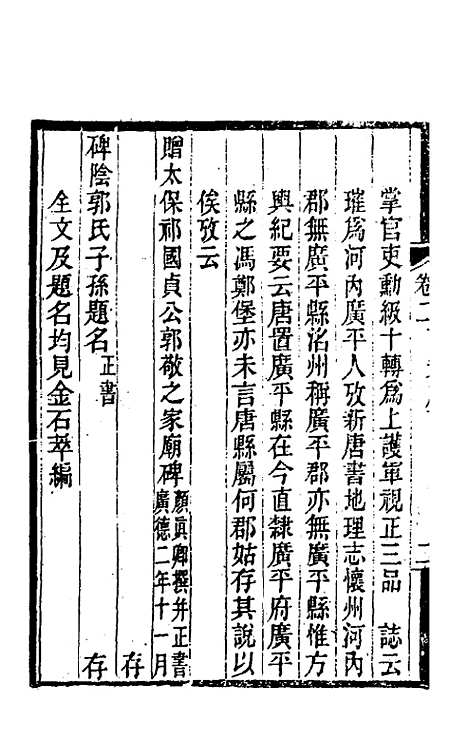 掌官吏勳級十轉爲上護軍視正三品　誌云
璀爲河內廣平人攷新唐書地理志懷州河內
郡無廣平縣洺州稱廣平郡亦無廣平縣惟方
輿紀要云唐置廣平縣在今直隸廣平府廣平
縣之馮鄭堡亦未言唐縣屬何郡姑存其說以
俟攷云
贈太保祁國貞公郭敬之家廟碑 顏眞卿撰并正書 廣德二年十一月
存
碑陰郭氏子孫題名 正書
存
全文及題名均見金石萃編
卷二